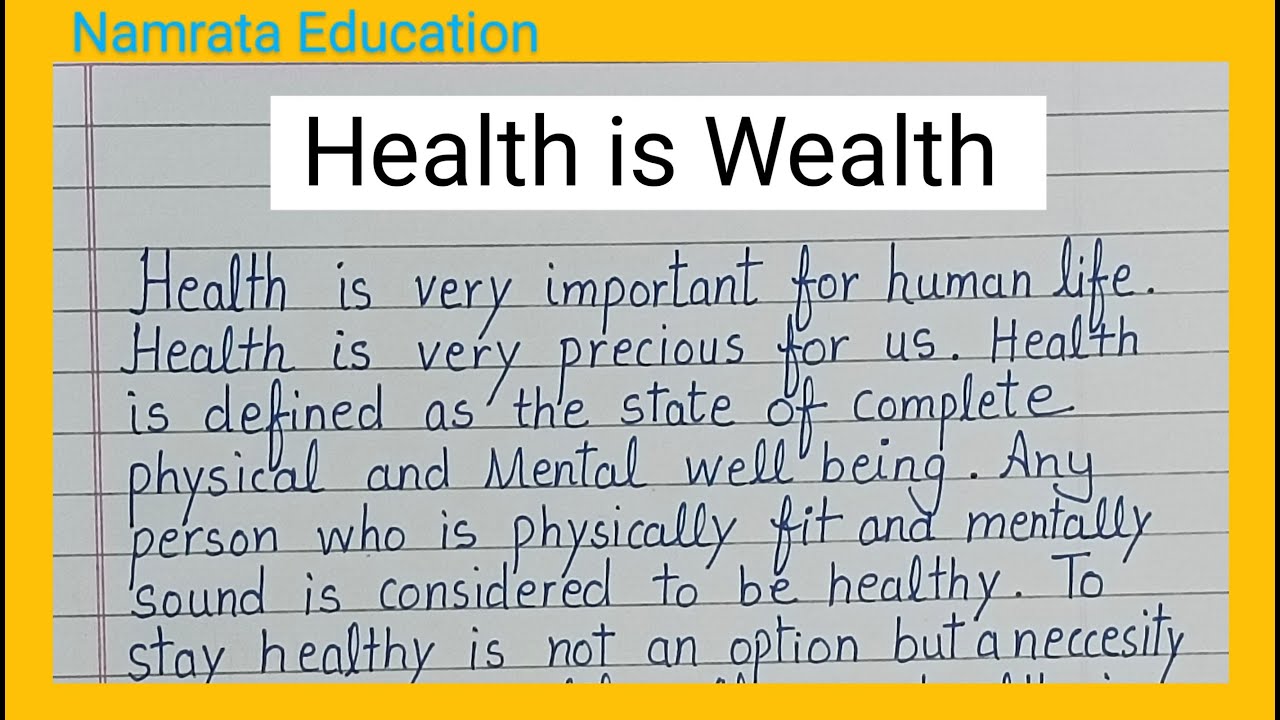 Namrata Education
Health is Wealth
Health is very important for human life.
Health is very precious for us. Health
is defined as the state of complete
physical and Mental well being. Any
person who is physically fit and mentally
sound is considered to be healthy. To
stay healthy is not an option but a neccesity